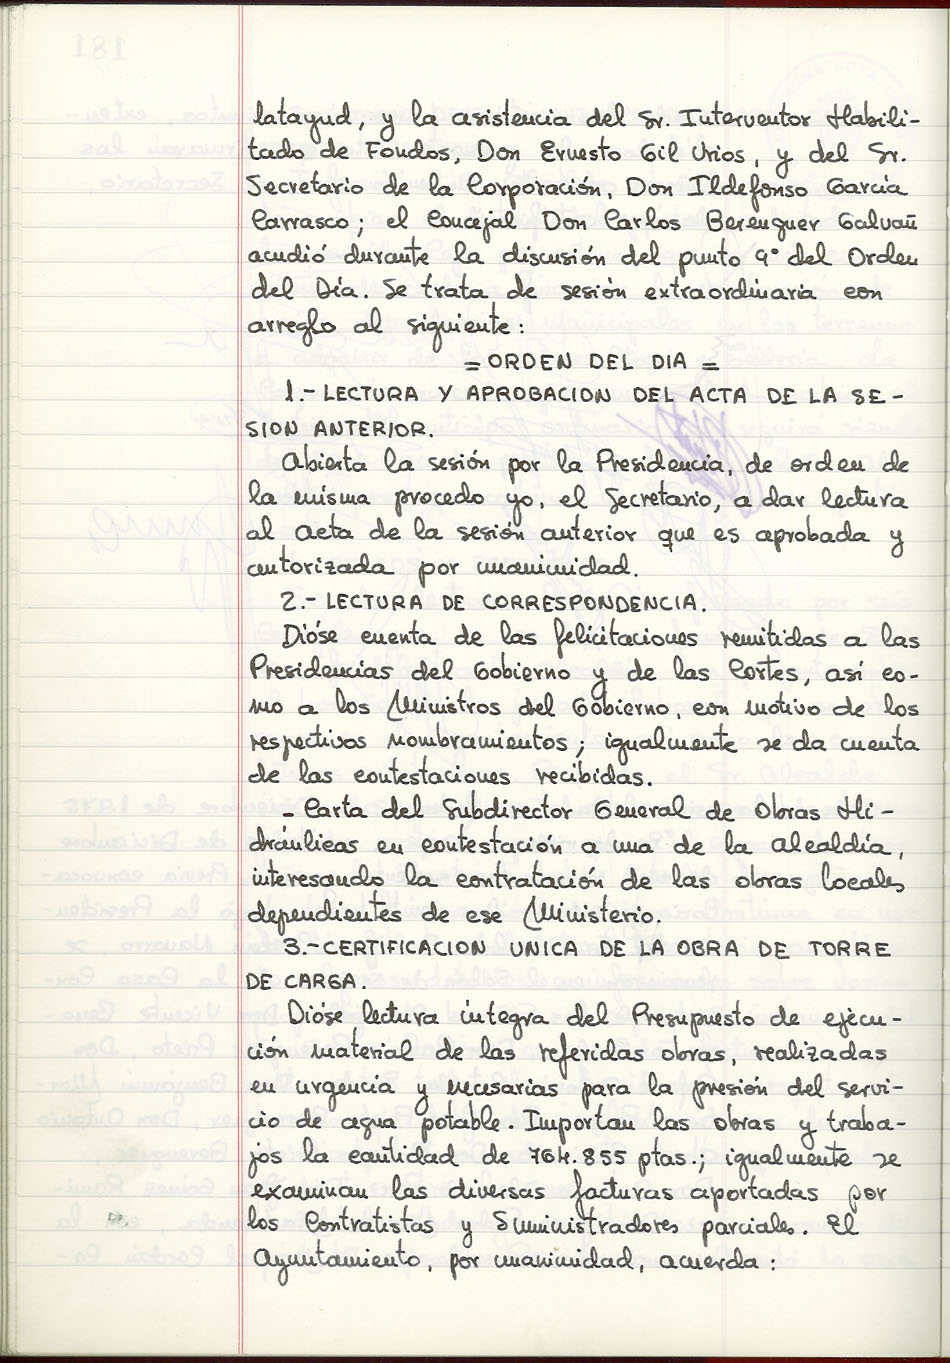 latayud, y la asistencia del Sr. Interventor Habili-
tado de Fondos, Don Ernesto Gil Urios, y del Sr.
Secretario de la Corporación, Don Ildefonso García
Carrasco; el Concejal Don Carlos Berenguer Galvañ
acudió durante la discusión del punto 9º del Orden
del Día. Se trata de sesión extraordinaria con
arreglo al siguiente:
= ORDEN DEL DIA =
1.- LECTURA Y APROBACION DEL ACTA DE LA SE-
SION ANTERIOR.
Abierta la sesión por la Presidencia, de orden de
la misma procedo yo, el Secretario, a dar lectura
al acta de la sesión anterior que es aprobada y
autorizada por unanimidad.
2.- LECTURA DE CORRESPONDENCIA.
Dióse cuenta de las felicitaciones remitidas a las
Presidencias del Gobierno y de las Cortes, así co-
mo a los Ministros del Gobierno, con motivo de los
respectivos nombramientos; igualmente se da cuenta
de las contestaciones recibidas.
- Carta del Subdirector General de Obras Hi-
dráulicas en contestación a una de la alcaldía,
interesando la contratación de las obras locales
dependientes de ese Ministerio.
3.- CERTIFICACION UNICA DE LA OBRA DE TORRE
DE CARGA.
Dióse lectura íntegra del Presupuesto de ejecu-
ción material de las referidas obras, realizadas
en urgencia y necesarias para la presión del servi-
cio de agua potable. Importan las obras y traba-
jos la cantidad de 764.855 ptas.; igualmente se
examinan las diversas facturas aportadas por
los Contratistas y Suministradores parciales. El
Ayuntamiento, por unanimidad, acuerda: